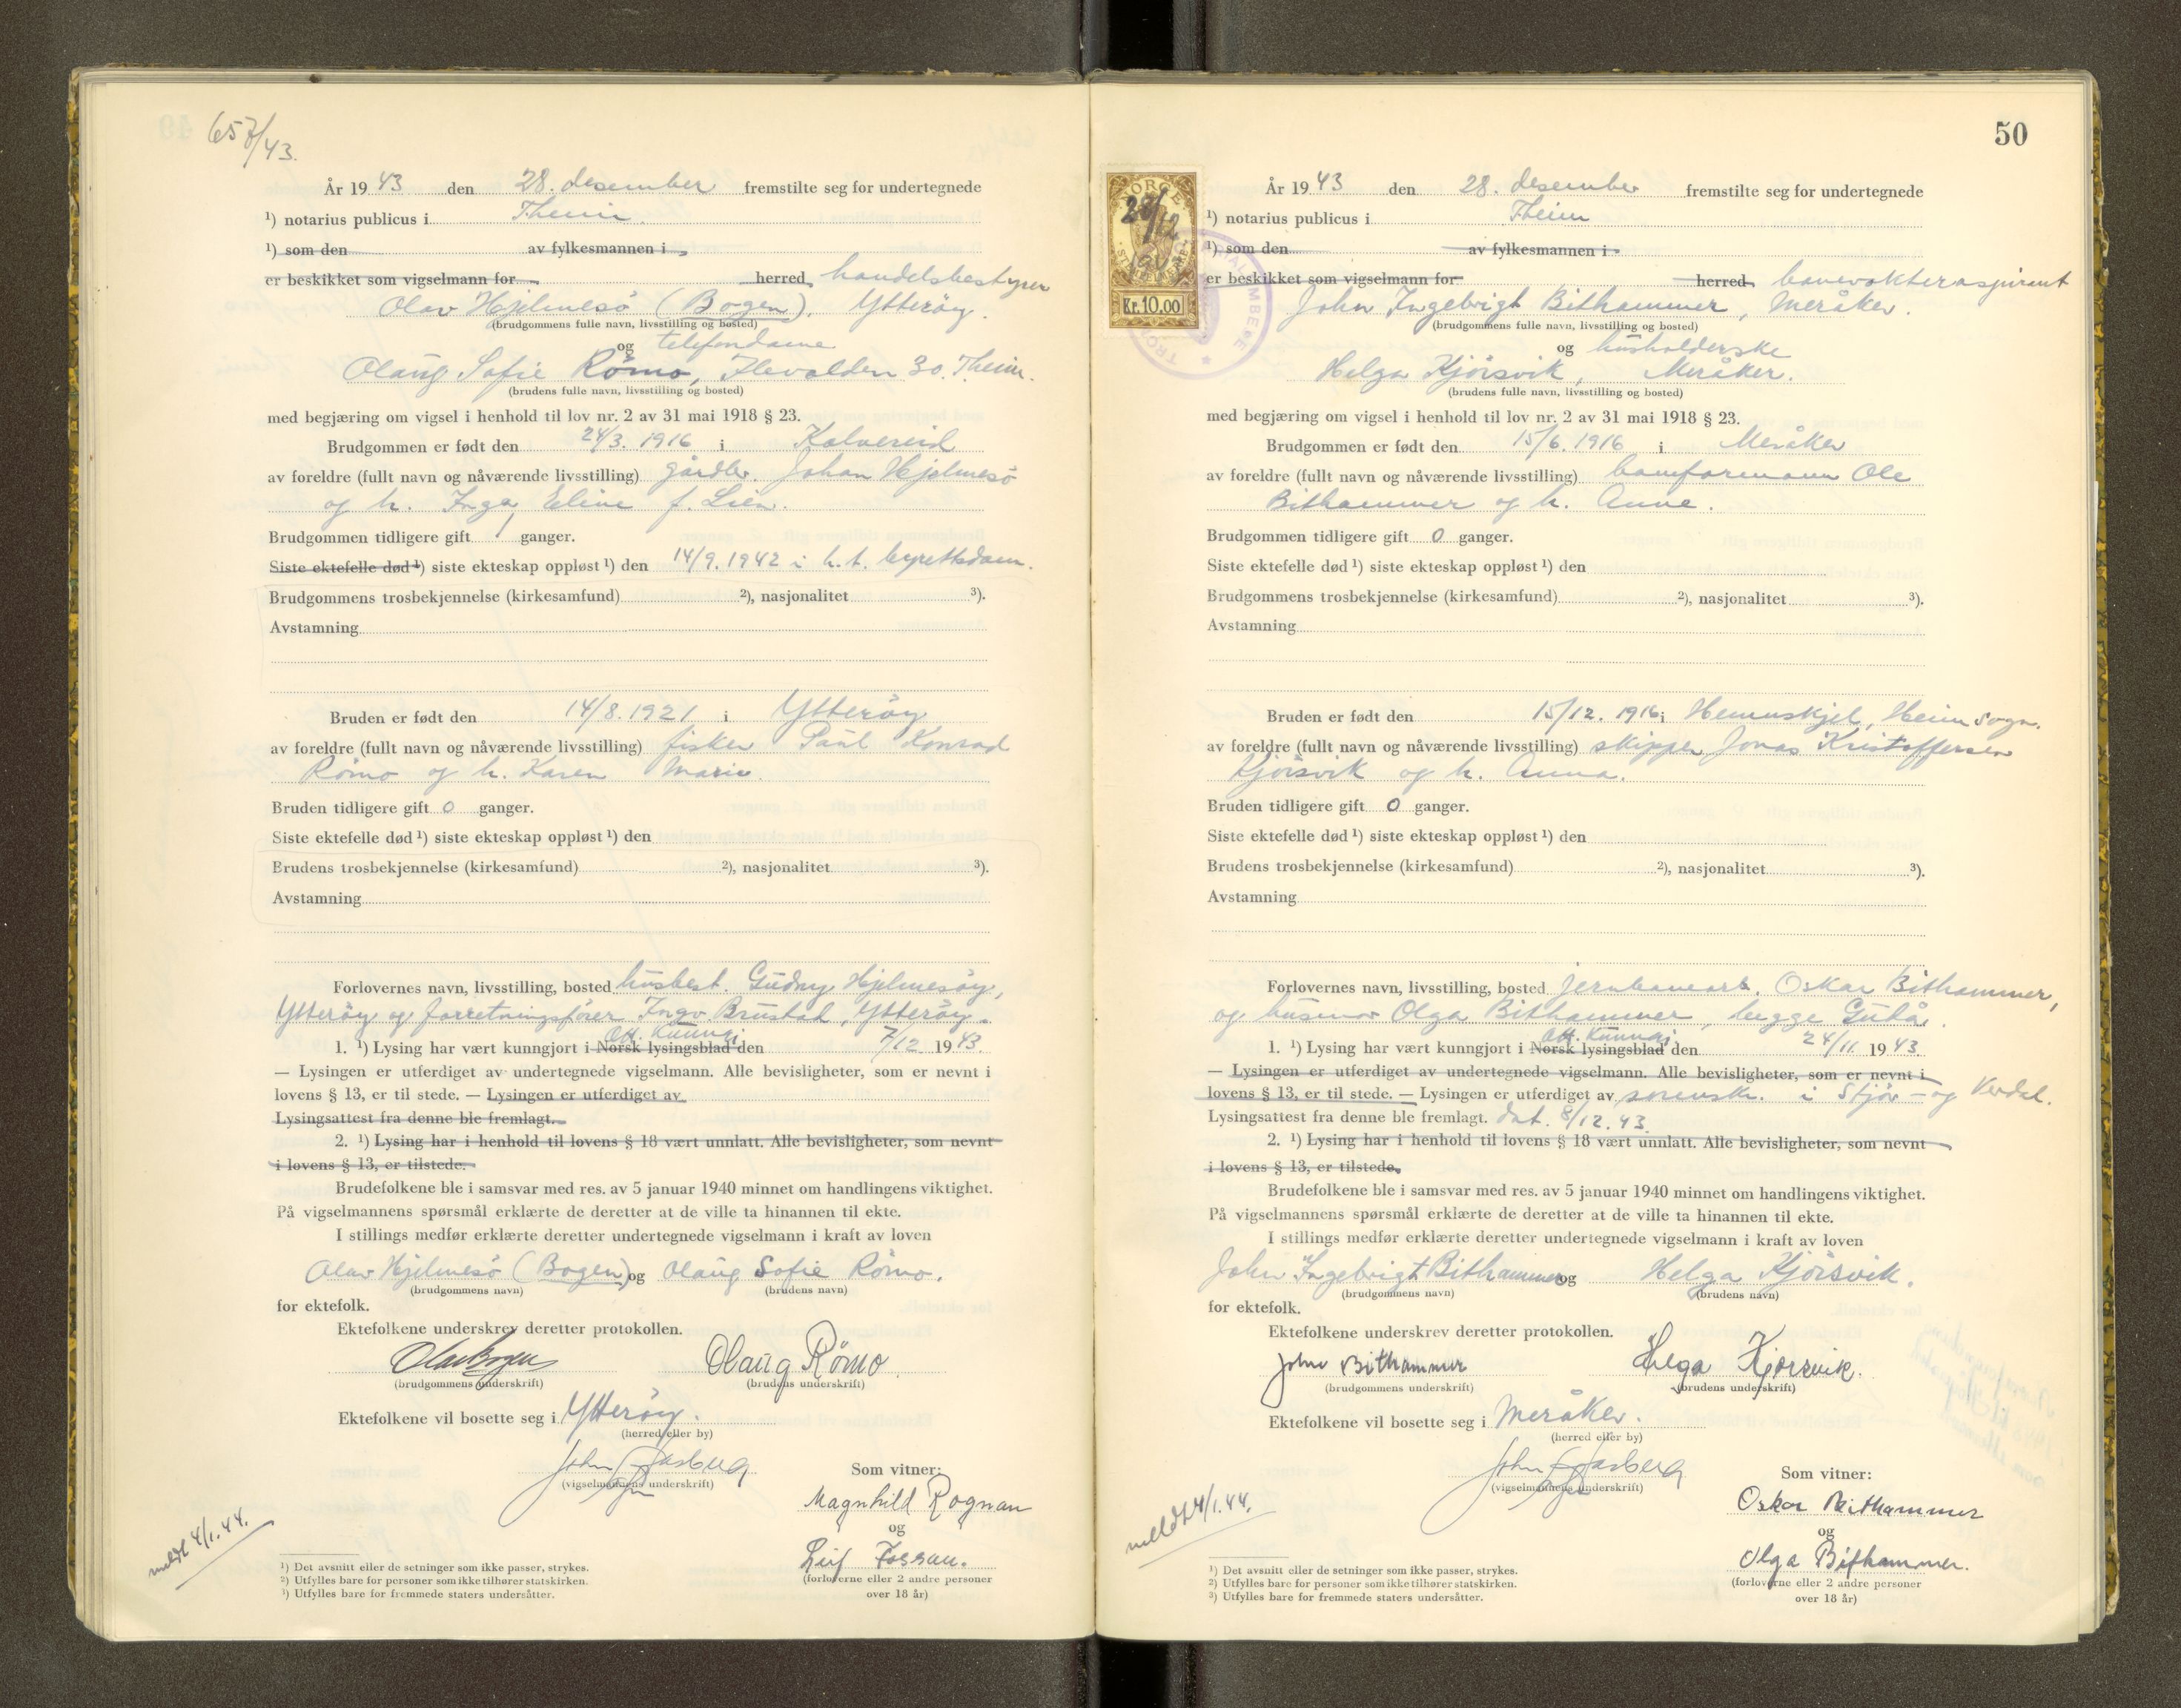 657/43.
År 19 43 den 28. desember fremstilte seg for undertegnede
¹) notarius publicus i Theim
¹) som den av fylkesmannen i
er beskikket som vigselmann for herred handelsbestyrer
Olav Hjelmesö (Bogen), Ytteröy.
(brudgommens fulle navn, livsstilling og bosted)
og telefondame
Olaug Sofie Römo, Ilevolden 30. Theim.
(brudens fulle navn, livsstilling og bosted)
med begjæring om vigsel i henhold til lov nr. 2 av 31 mai 1918 § 23.
Brudgommen er født den 24/3. 1916 i Kolvereid
av foreldre (fullt navn og nåværende livsstilling) gårdbr. Johan Hjelmesö
og h. Inga Eline f. Lien.
Brudgommen tidligere gift 1 ganger.
Siste ektefelle død ¹) siste ekteskap oppløst ¹) den 14/9. 1942 i h. t. byrettsdom.
Brudgommens trosbekjennelse (kirkesamfund) ²), nasjonalitet ³).
Avstamning
Bruden er født den 14/8. 1921 i Ytteröy
av foreldre (fullt navn og nåværende livsstilling) fisker Paul Konrad
Römo og h. Karen Marie.
Bruden tidligere gift 0 ganger.
Siste ektefelle død ¹) siste ekteskap oppløst ¹) den
Brudens trosbekjennelse (kirkesamfund) ²), nasjonalitet ³).
Avstamning
Forlovernes navn, livsstilling, bosted husbest. Gudny Hjelmesöy,
Ytteröy og forretningsfører Ingv. Brustad, Ytteröy.
Off. Kunngj.
1. ¹) Lysing har vært kunngjort i Norsk lysingsblad den 7/12 19 43.
— Lysingen er utferdiget av undertegnede vigselmann. Alle bevisligheter, som er nevnt i
lovens § 13, er til stede. — Lysingen er utferdiget av
Lysingsattest fra denne ble fremlagt.
2. ¹) Lysing har i henhold til lovens § 18 vært unnlatt. Alle bevisligheter, som nevnt
i lovens § 13, er tilstede.
Brudefolkene ble i samsvar med res. av 5 januar 1940 minnet om handlingens viktighet.
På vigselmannens spørsmål erklærte de deretter at de ville ta hinannen til ekte.
I stillings medfør erklærte deretter undertegnede vigselmann i kraft av loven
Olav Hjelmesö (Bogen) og Olaug Sofie Römo.
(brudgommens navn) (brudens navn)
for ektefolk.
Ektefolkene underskrev deretter protokollen.
Olav Bogen Olaug Römo.
(brudgommens underskrift) (brudens underskrift)
Ektefolkene vil bosette seg i Ytteröy.
(herred eller by)
(vigselmannens underskrift) Som vitner:
Magnhild Rognan
og
Leif Fossum.
(forloverne eller 2 andre personer
over 18 år)
meldt 4/1.44.
¹) Det avsnitt eller de setninger som ikke passer, strykes.
²) Utfylles bare for personer som ikke tilhører statskirken.
¹) Utfylles bare for fremmede staters undersåtter.
50
NORGE
28/12
1943
Kr. 10.00
År 19 43 den 28. desember fremstilte seg for undertegnede
¹) notarius publicus i Theim
¹) som den av fylkesmannen i
er beskikket som vigselmann for herred banevokteraspirant
John Ingebrigt Bithammer, Meråker.
(brudgommens fulle navn, livsstilling og bosted)
og husholderske
Helga Kjörsvik, Meråker.
(brudens fulle navn, livsstilling og bosted)
med begjæring om vigsel i henhold til lov nr. 2 av 31 mai 1918 § 23.
Brudgommen er født den 15/6. 1916 i Meråker
av foreldre (fullt navn og nåværende livsstilling) baneformann Ole
Bithammer og h. Anne.
Brudgommen tidligere gift 0 ganger.
Siste ektefelle død ¹) siste ekteskap oppløst ¹) den
Brudgommens trosbekjennelse (kirkesamfund) ²), nasjonalitet ³).
Avstamning
Bruden er født den 15/12. 1916 i Hemnskjel, Heim sogn.
av foreldre (fullt navn og nåværende livsstilling) skipper Jonas Kristoffersen
Kjörsvik og h. Anna.
Bruden tidligere gift 0 ganger.
Siste ektefelle død ¹) siste ekteskap oppløst ¹) den
Brudens trosbekjennelse (kirkesamfund) ²), nasjonalitet ³).
Avstamning
Forlovernes navn, livsstilling, bosted jernbanearb. Oskar Bithammer,
og husmor Olga Bithammer, begge Gudå.
Off. Kunngj.
1. ¹) Lysing har vært kunngjort i Norsk lysingsblad den 24/11 19 43
— Lysingen er utferdiget av undertegnede vigselmann. Alle bevisligheter, som er nevnt i
lovens § 13, er til stede. — Lysingen er utferdiget av sorenskr. i Stjör- og Verdal.
Lysingsattest fra denne ble fremlagt. dat. 8/12. 43.
2. ¹) Lysing har i henhold til lovens § 18 vært unnlatt. Alle bevisligheter, som nevnt
i lovens § 13, er tilstede.
Brudefolkene ble i samsvar med res. av 5 januar 1940 minnet om handlingens viktighet.
På vigselmannens spørsmål erklærte de deretter at de ville ta hinannen til ekte.
I stillings medfør erklærte deretter undertegnede vigselmann i kraft av loven
John Ingebrigt Bithammer og Helga Kjörsvik.
(brudgommens navn) (brudens navn)
for ektefolk.
Ektefolkene underskrev deretter protokollen.
John Bithammer Helga Kjørsvik.
(brudgommens underskrift) (brudens underskrift)
Ektefolkene vil bosette seg i Meråker.
(herred eller by)
(vigselmannens underskrift) Som vitner:
Oskar Bithammer
og
Olga Bithammer.
(forloverne eller 2 andre personer
over 18 år)
meldt 4/1.44.
¹) Det avsnitt eller de setninger som ikke passer, strykes.
²) Utfylles bare for personer som ikke tilhører statskirken.
³) Utfylles bare for fremmede staters undersåtter.